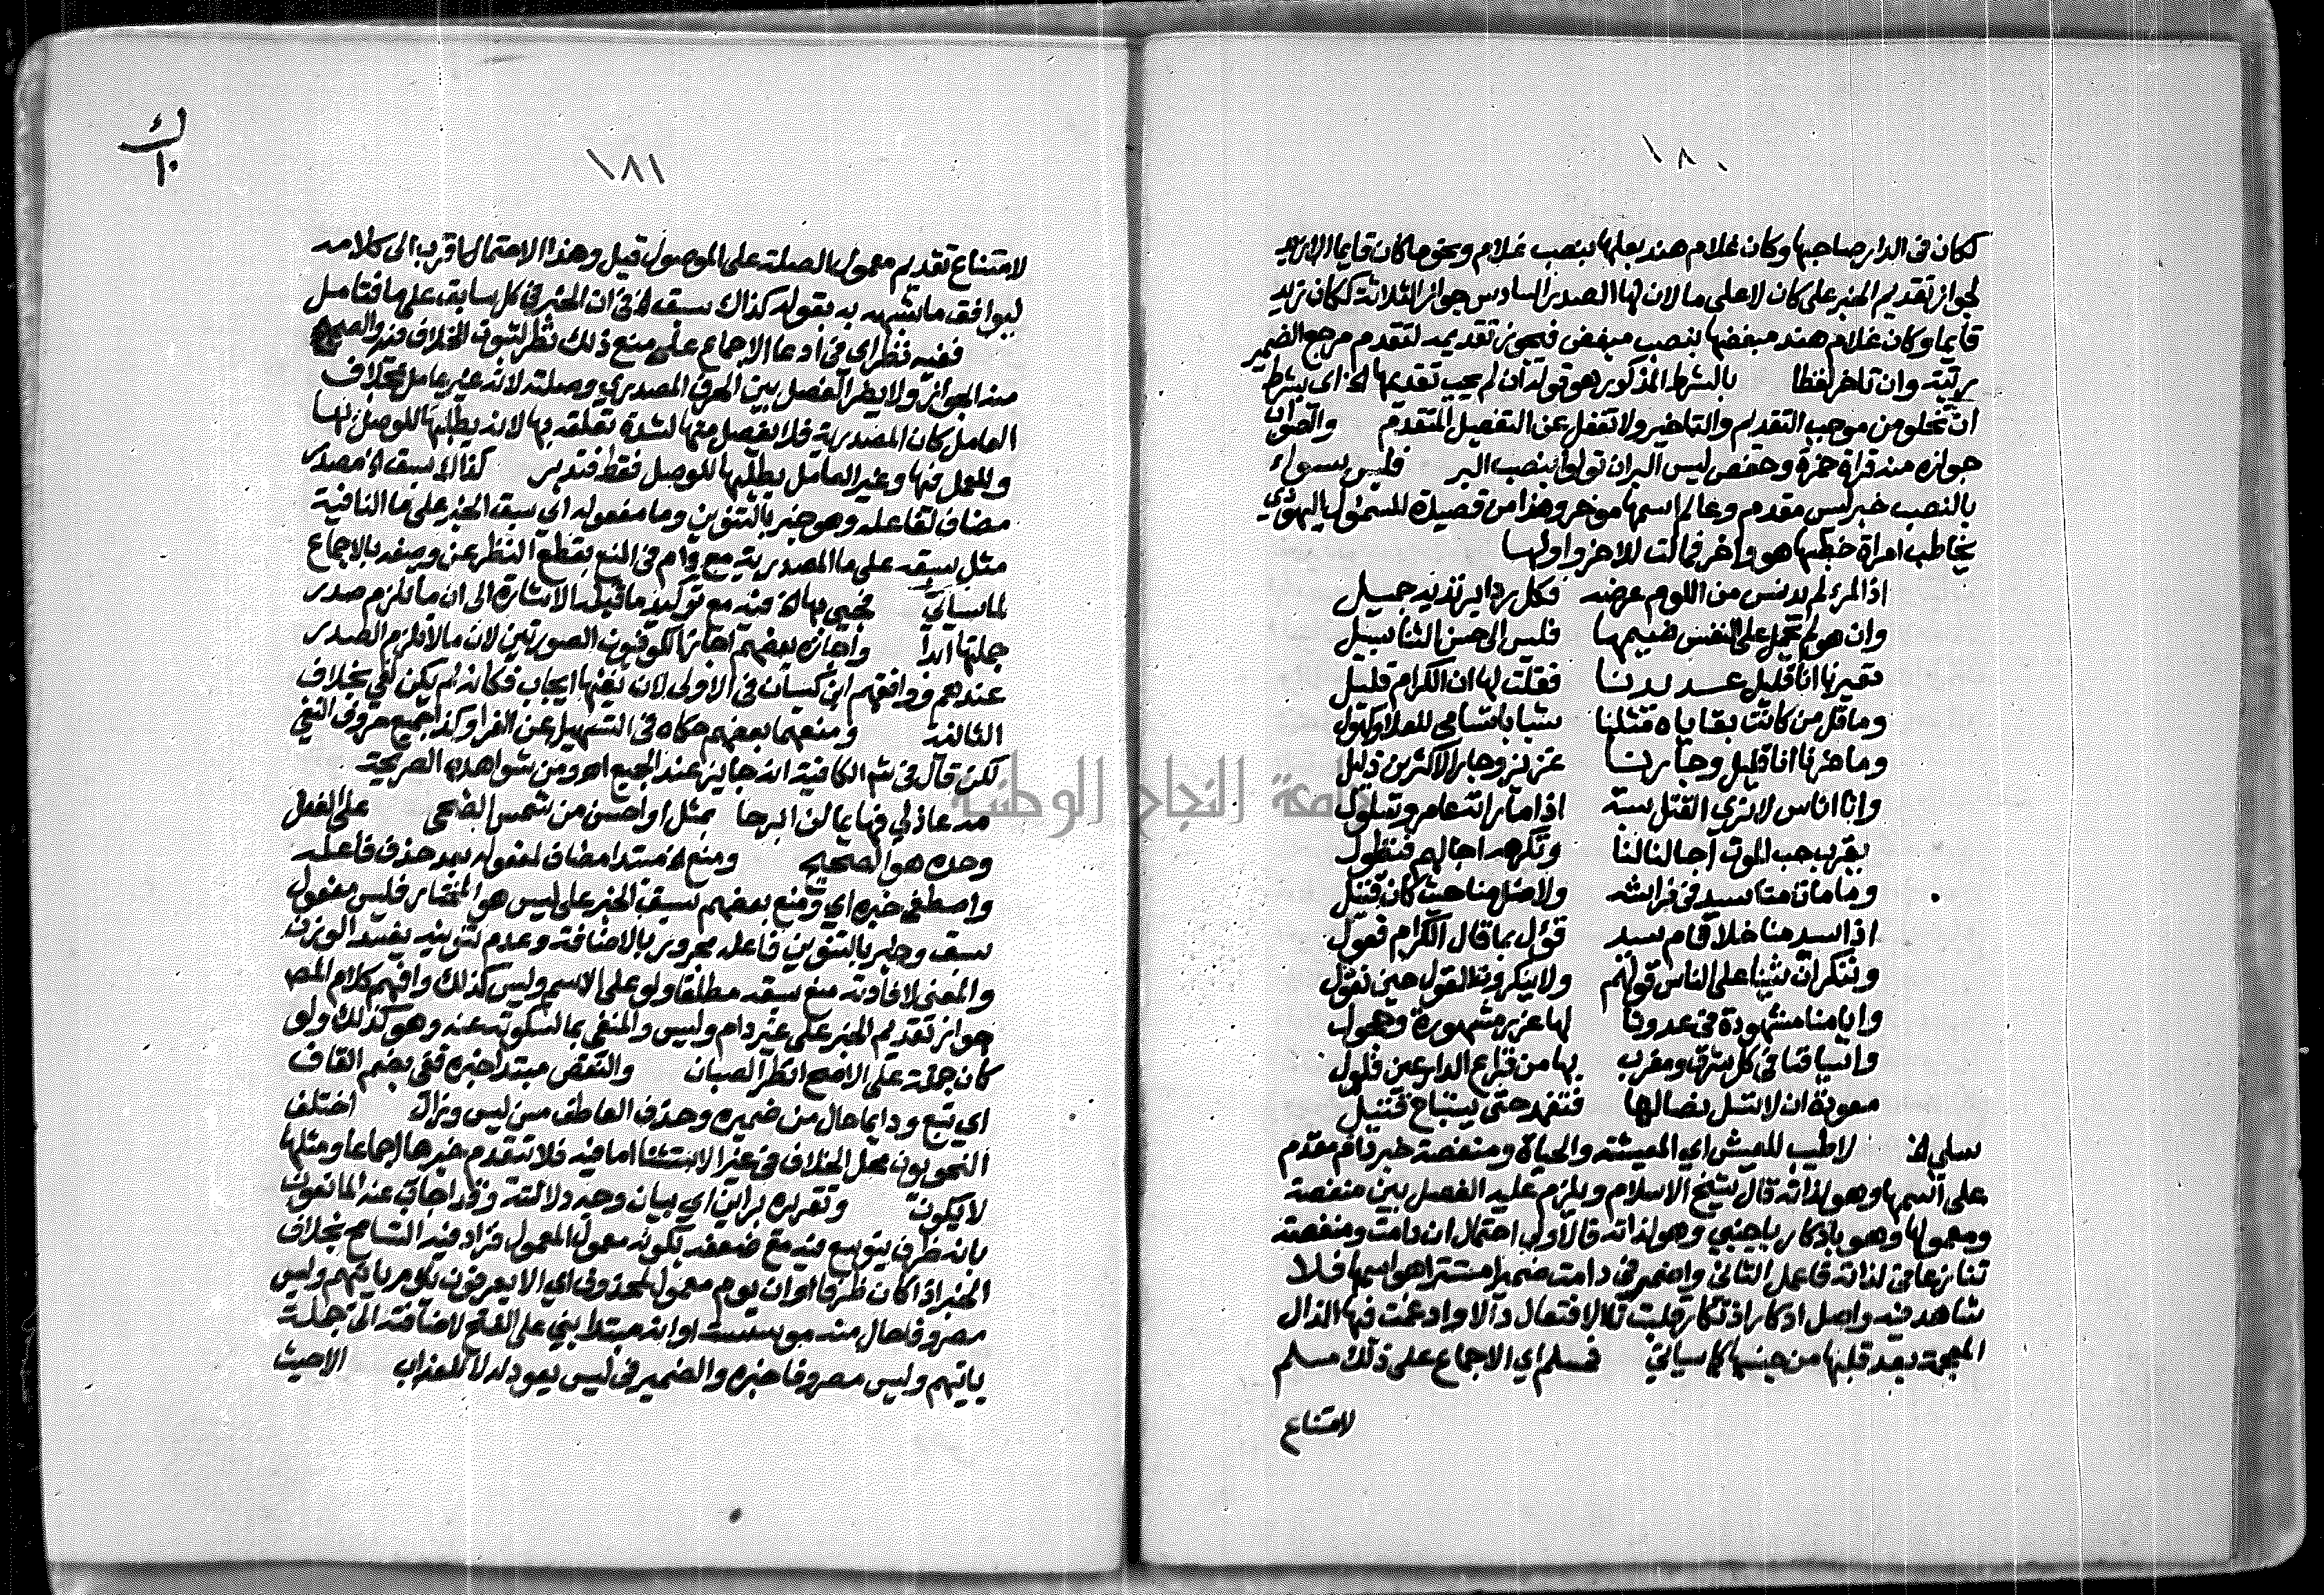 ١٨٠
ككان في الدار صاحبها وكان غلام هند بعلها بنصب غلام ونحو ما كان قايما الا زيد
لجواز تقديم الخبر على كان لا على ما لان لها الصدر السادس جواز الثلاثة ككان زيد
قايما وكان غلام هند مبغضها بنصب مبغض فيجوز تقديمه لتقدم مرجع الضمير
رتبة وان تاخر لفظا بالشرط المذكور هو قوله ان لم يجب تقديمها الخ اي بشرط
ان تخلو من موجب التقديم والتاخير ولا تغفل عن التفصيل المتقدم والصواب
جوازه منه قراة حمزة وحفص ليس البر ان تولوا بنصب البر فليس سواء
بالنصب خبر ليس مقدم وعالم اسمها موخر وهذا من قصيدة للسموئل اليهودي
يخاطب امراة خطبها هو واخر فمالت للاخر واولها
اذا المرء لم يدنس من اللوم عرضه فكل رداء يرتديه جميل
وان هو لم يحمل على النفس ضيمها فليس الى حسن الثنا سبيل
تعيرنا انا قليل عديدنا فقلت لها ان الكرام قليل
وما قل من كانت بقاياه مثلنا شباب تسامى للعلا وكهول
وما ضرنا انا قليل وجارنا عزيز وجار الاكثرين ذليل
وانا اناس لا نري القتل سبة اذا ما راته عامر وسلول
يقرب حب الموت اجالنا لنا وتكرهه اجالهم فتطول
وما مات منا سيد في فراشه ولا ضل منا حيث كان قتيل
اذا سيد منا خلا قام سيد قؤل بما قال الكرام فعول
وننكر ان شينا على الناس قولهم ولا ينكرون القول حين نقول
وايامنا مشهودة في عدونا لها غرر مشهورة وحجول
واسيافنا في كل شرق ومغرب بها من قراع الدارعين فلول
معودة ان لا تسل نصالها فتغمد حتى يستباح قتيل
سلي الخ لا طيب للعيش اي المعيشة والحياة ومنغصة خبر دام مقدم
على اسمها وهو لذاته قال شيخ الاسلام ويلزم عليه الفصل بين منغصة
ومعمولها وهو باذكار باجنبي وهو لذاته فالاولى احتمال ان دامت ومنغصة
تنازعا في لذاته فاعمل الثاني واضمر في دامت ضميرا مستترا هو اسمها فلا
شاهد فيه واصل ادكار اذتكار قلبت تاء الافتعال دالا وادغمت فيها الذال
المعجمة بعد قلبها من جنسها كما سياتي فمسلم اي الاجماع على ذلك مسلم
لامتناع
١٨١
لامتناع تقديم معمول الصلة على الموصول قيل وهذا الاحتمال اقرب الى كلامه
ليوافق ما شبه به بقوله كذاك سبق الخ في ان الخبر في كل سابق عليها فتامل
ففيه نظر اي في ادعا الاجماع على منع ذلك نظر لثبوت الخلاف فيه والصحيح
منه الجواز ولا يضر الفصل بين الحرف المصدري وصلته لانه غير عامل بخلاف
العامل كان المصدرية فلا يفصل منها لشدة تعلقه بها لانه يطلبها للوصل بها
وللعمل فيها وغير العامل يطلبها للوصل فقط فتدبر كذاك سبق الخ مصدر
مضاف لفاعله وهو خبر بالتنوين وما مفعوله اي سبق الخبر على ما النافية
مثل سبقه على ما المصدرية مع دام في المنع بقطع النظر عن وصفه بالاجماع
لما سياتي فجيي بها الخ فيه مع توكيد ما قبله الاشارة الى ان ما تلزم صدر
جملتها ابدا واجازه بعضهم اجازها الكوفيون الصورتين لان ما لا تلزم الصدر
عندهم ووافقهم ابن كيسان في الاولى لان نفيها ايجاب فكانه لم يكن نفي بخلاف
الثانية ومنعهما بعضهم حكاه في التسهيل عن الفرا وكذا جميع حروف النفي
لكن قال في شرح الكافية انه جايز عند الجميع اه ومن شواهده الصريحة
مه عاذلي فهايما لن ابرحا بمثل او احسن من شمس الضحى على الفعل
وحده هو الصحيح ومنع الخ مبتدا مضاف لمفعوله بعد حذف فاعله
واصطفي خبره اي ومنع بعضهم سبق الخبر على ليس هو المختار فليس مفعول
سبق وخبر بالتنوين فاعله مجرور بالاضافة وعدم تنوينه يفسد الوزن
والمعنى لافادته منع سبقه مطلقا ولو على الاسم وليس كذلك وافهم كلام المص
جواز تقديم الخبر على غير دام وليس والمنفي بما لسكوته عنه وهو كذلك ولو
كان جملة على الاصح انظر الصبان والنقص مبتدا خبره قفي بضم القاف
اي تبع ودايما حال من ضميره وحذف العاطف من ليس وزال اختلف
النحويون محل الخلاف في غير الاستثنا اما فيه فلا تتقدم خبرها اجماعا ومثلها
لا يكون وتقريره براين اي بيان وجه دلالته وقد اجاب عنه المانعون
بانه ظرف يتوسع فيه مع ضعفه بكونه معمول المعمول فزاد فيه التسامح بخلاف
الخبر اذا كان ظرفا او ان يوم معمول لمحذوف اي الا يعرفون يوم ياتيهم وليس
مصروفا حال منه او انه مبتدا بني على الفتح لاضافته الى جملة
ياتيهم وليس مصروفا خبره والضمير في ليس يعود له لا للعذاب الا حيث
جامعة النجاح الوطنية